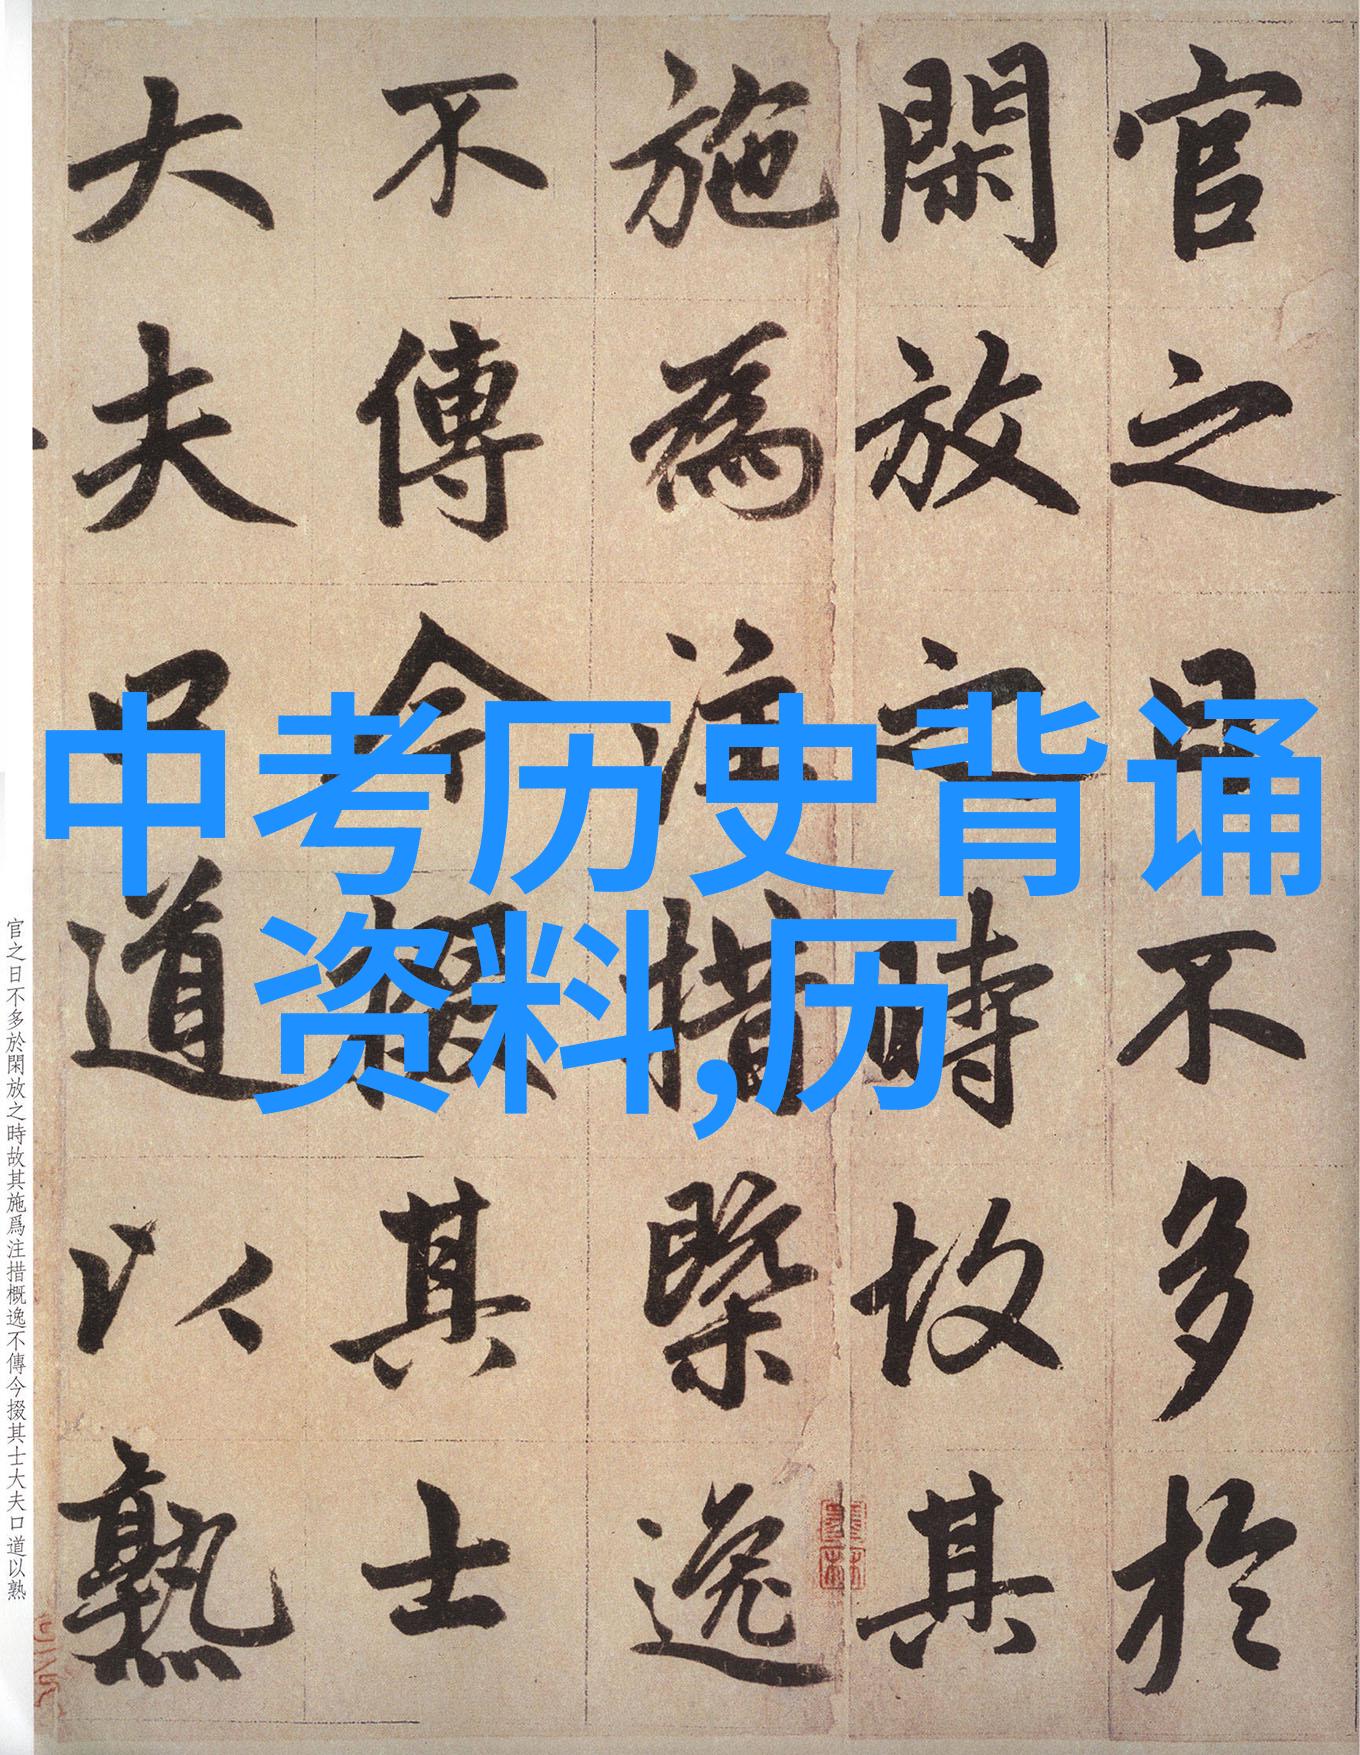 官之日不多於
閑放之時故其
施為注措槩逸
不傳今掇其士
大夫口道以熟
中考历史背诵
资料,历
官之日不多於閑放之時故其施爲注措概逸不傳今掇其士大夫口道以熟